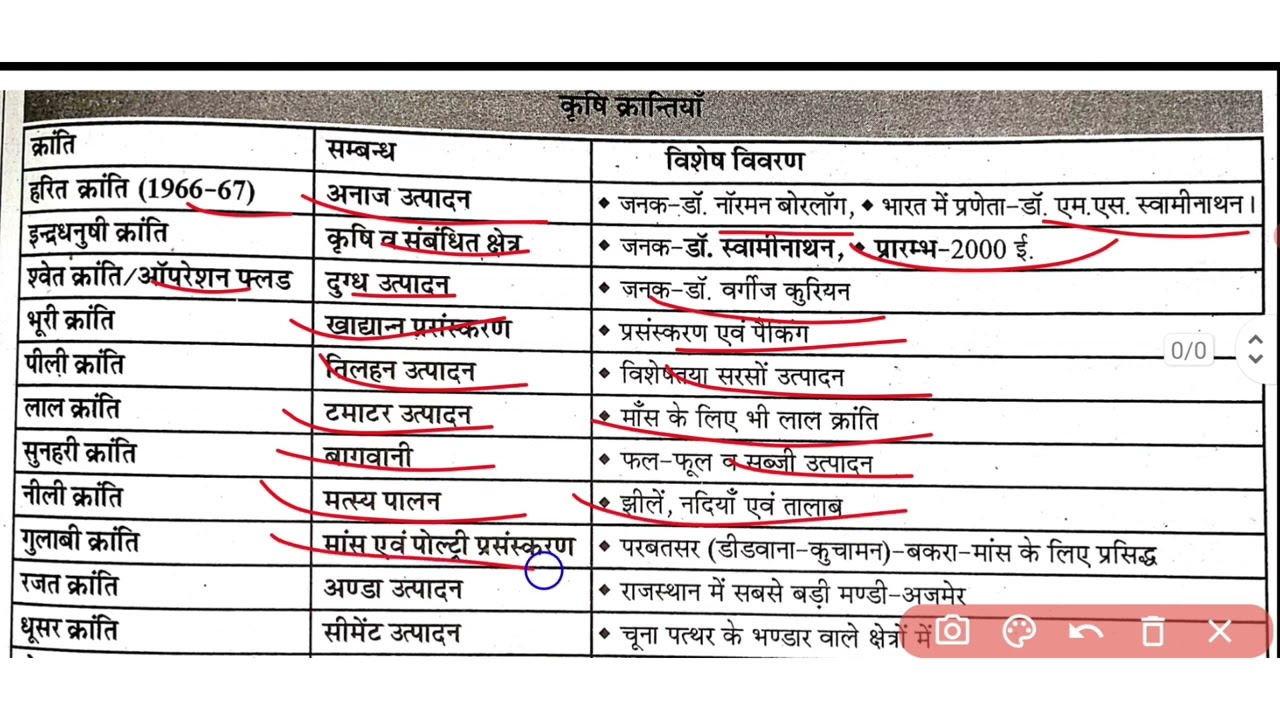 कृषि क्रान्तियाँ
क्रांति सम्बन्ध विशेष विवरण
हरित क्रांति (1966-67) अनाज उत्पादन ◆ जनक-डॉ. नॉरमन बोरलॉग, ◆ भारत में प्रणेता-डॉ. एम.एस. स्वामीनाथन।
इन्द्रधनुषी क्रांति कृषि व संबंधित क्षेत्र ◆ जनक-डॉ. स्वामीनाथन, ◆ प्रारम्भ-2000 ई.
श्वेत क्रांति/ऑपरेशन फ्लड दुग्ध उत्पादन ◆ जनक-डॉ. वर्गीज कुरियन
भूरी क्रांति खाद्यान्न प्रसंस्करण ◆ प्रसंस्करण एवं पैकिंग
पीली क्रांति तिलहन उत्पादन ◆ विशेषतया सरसों उत्पादन
0/0
लाल क्रांति टमाटर उत्पादन ◆ माँस के लिए भी लाल क्रांति
सुनहरी क्रांति बागवानी ◆ फल-फूल व सब्जी उत्पादन
नीली क्रांति मत्स्य पालन ◆ झीलें, नदियाँ एवं तालाब
गुलाबी क्रांति मांस एवं पोल्ट्री प्रसंस्करण ◆ परबतसर (डीडवाना-कुचामन)-बकरा-मांस के लिए प्रसिद्ध
रजत क्रांति अण्डा उत्पादन ◆ राजस्थान में सबसे बड़ी मण्डी-अजमेर
धूसर क्रांति सीमेंट उत्पादन ◆ चूना पत्थर के भण्डार वाले क्षेत्रों में